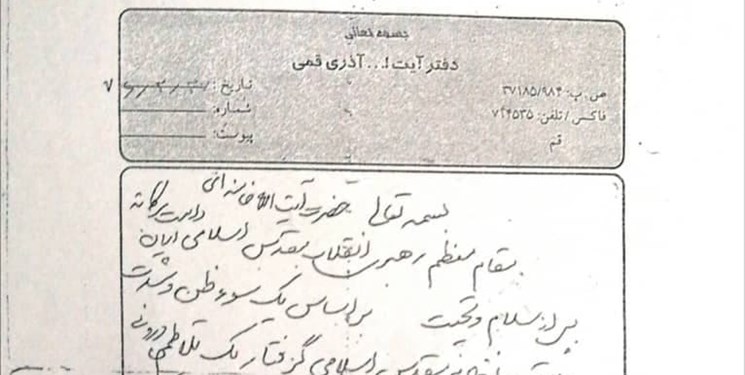 بسمه تعالی
دفتر آیت ا... آذری قمی
ص. ب: ۳۷۱۸۵/۹۸۴
تاریخ:
فاکس / تلفن: ۷۴۴۵۳۵
شماره:
قم
پیوست:
بسمه تعالی حضرت آیت الله خامنه‌ای دامت برکاته
مقام معظم رهبری انقلاب مقدس اسلامی ایران
پس از سلام و تحیت بر اساس یک سوء ظن و
مقدس اسلامی گرفتار یک تلاطم درونی